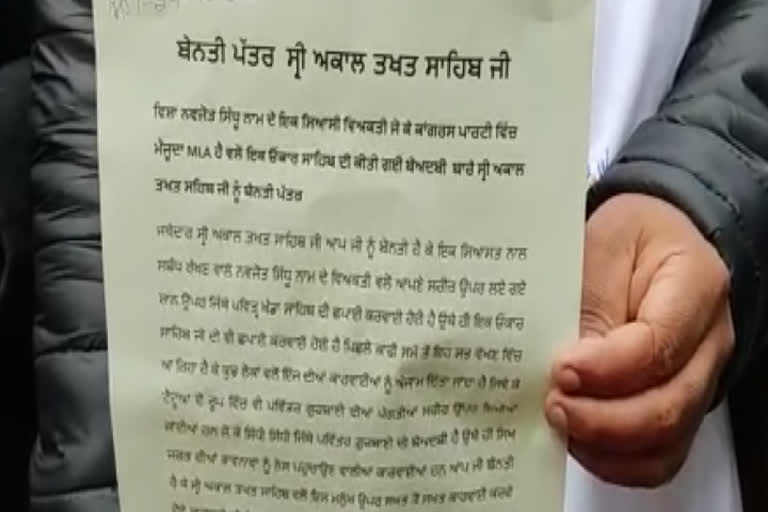 ਬੇਨਤੀ ਪੱਤਰ ਸ੍ਰੀ ਅਕਾਲ ਤਖਤ ਸਾਹਿਬ ਜੀ
ਵਿਸ਼ਾ ਨਵਜੋਤ ਸਿੱਧੂ ਨਾਮ ਦੇ ਇਕ ਸਿਆਸੀ ਵਿਅਕਤੀ ਜੋ ਕੇ ਕਾਂਗਰਸ ਪਾਰਟੀ ਵਿੱਚ
ਮੌਜੂਦਾ MLA ਹੈ ਵਲੋਂ ਇਕ ਓਂਕਾਰ ਸਾਹਿਬ ਦੀ ਕੀਤੀ ਗਈ ਬੇਅਦਬੀ ਬਾਰੇ ਸ੍ਰੀ ਅਕਾਲ
ਤਖਤ ਸਹਿਬ ਜੀ ਨੂੰ ਬੇਨਤੀ ਪੱਤਰ
ਜਥੇਦਾਰ ਸ੍ਰੀ ਅਕਾਲ ਤਖਤ ਸਾਹਿਬ ਜੀ ਆਪ ਜੀ ਨੂੰ ਬੇਨਤੀ ਹੈ ਕੇ ਇਕ ਸਿਆਸਤ ਨਾਲ
ਸਬੰਧ ਰੱਖਣ ਵਾਲੇ ਨਵਜੋਤ ਸਿੱਧੂ ਨਾਮ ਦੇ ਵਿਅਕਤੀ ਵਲੋਂ ਆਪਣੇ ਸਰੀਰ ਉਪਰ ਲਏ ਗਏ
ਸ਼ਾਲ ਉਪਰ ਜਿੱਥੇ ਪਵਿਤ੍ਰ ਖੰਡਾ ਸਾਹਿਬ ਦੀ ਛਪਾਈ ਕਰਵਾਈ ਹੋਈ ਹੈ ਉਥੇ ਹੀ ਇਕ ਓਂਕਾਰ
ਸਾਹਿਬ ਜੀ ਦੀ ਵੀ ਛਪਾਈ ਕਰਵਾਈ ਹੋਈ ਹੈ ਪਿਛਲੇ ਕਾਫੀ ਸਮੇਂ ਤੋਂ ਇਹ ਸਭ ਵੇਖਣ ਵਿੱਚ
ਆ ਰਿਹਾ ਹੈ ਕੇ ਕੁਝ ਲੋਕਾਂ ਵਲੋਂ ਇੰਜ ਦੀਆਂ ਕਾਰਵਾਈਆਂ ਨੂੰ ਅੰਜਾਮ ਦਿੱਤਾ ਜਾਂਦਾ ਹੈ ਜਿਵੇਂ ਕੇ
ਟੈਟੂਆਂ ਦੇ ਰੂਪ ਵਿੱਚ ਵੀ ਪਵਿੱਤਰ ਗੁਰਬਾਣੀ ਦੀਆਂ ਪੰਗਤੀਆਂ ਸਰੀਰ ਉਪਰ
ਜਾਂਦੀਆਂ ਹਨ ਜੋ ਕੇ ਸਿੱਧੀ ਸਿੱਧੀ ਜਿੱਥੇ ਪਵਿੱਤਰ ਗੁਰਬਾਣੀ ਦੀ ਬੇਅਦਬੀ ਹੈ ਉਥੇ ਹੀ ਸਿਖ
ਜਗਤ ਦੀਆਂ ਭਾਵਨਾਵਾਂ ਨੂੰ ਠੇਸ ਪਹੁੰਚਾਉਣ ਵਾਲੀਆਂ ਕਾਰਵਾਈਆਂ ਹਨ ਆਪ ਜੀ ਬੇਨਤੀ
ਹੈ ਕੇ ਸ੍ਰੀ ਅਕਾਲ ਤਖਤ ਸਾਹਿਬ ਵਲੋਂ ਇਸ ਮਨੁੱਖ ਉਪਰ ਸਖਤ ਤੋਂ ਸਖਤ ਕਾਰਵਾਈ ਕਰਦੇ